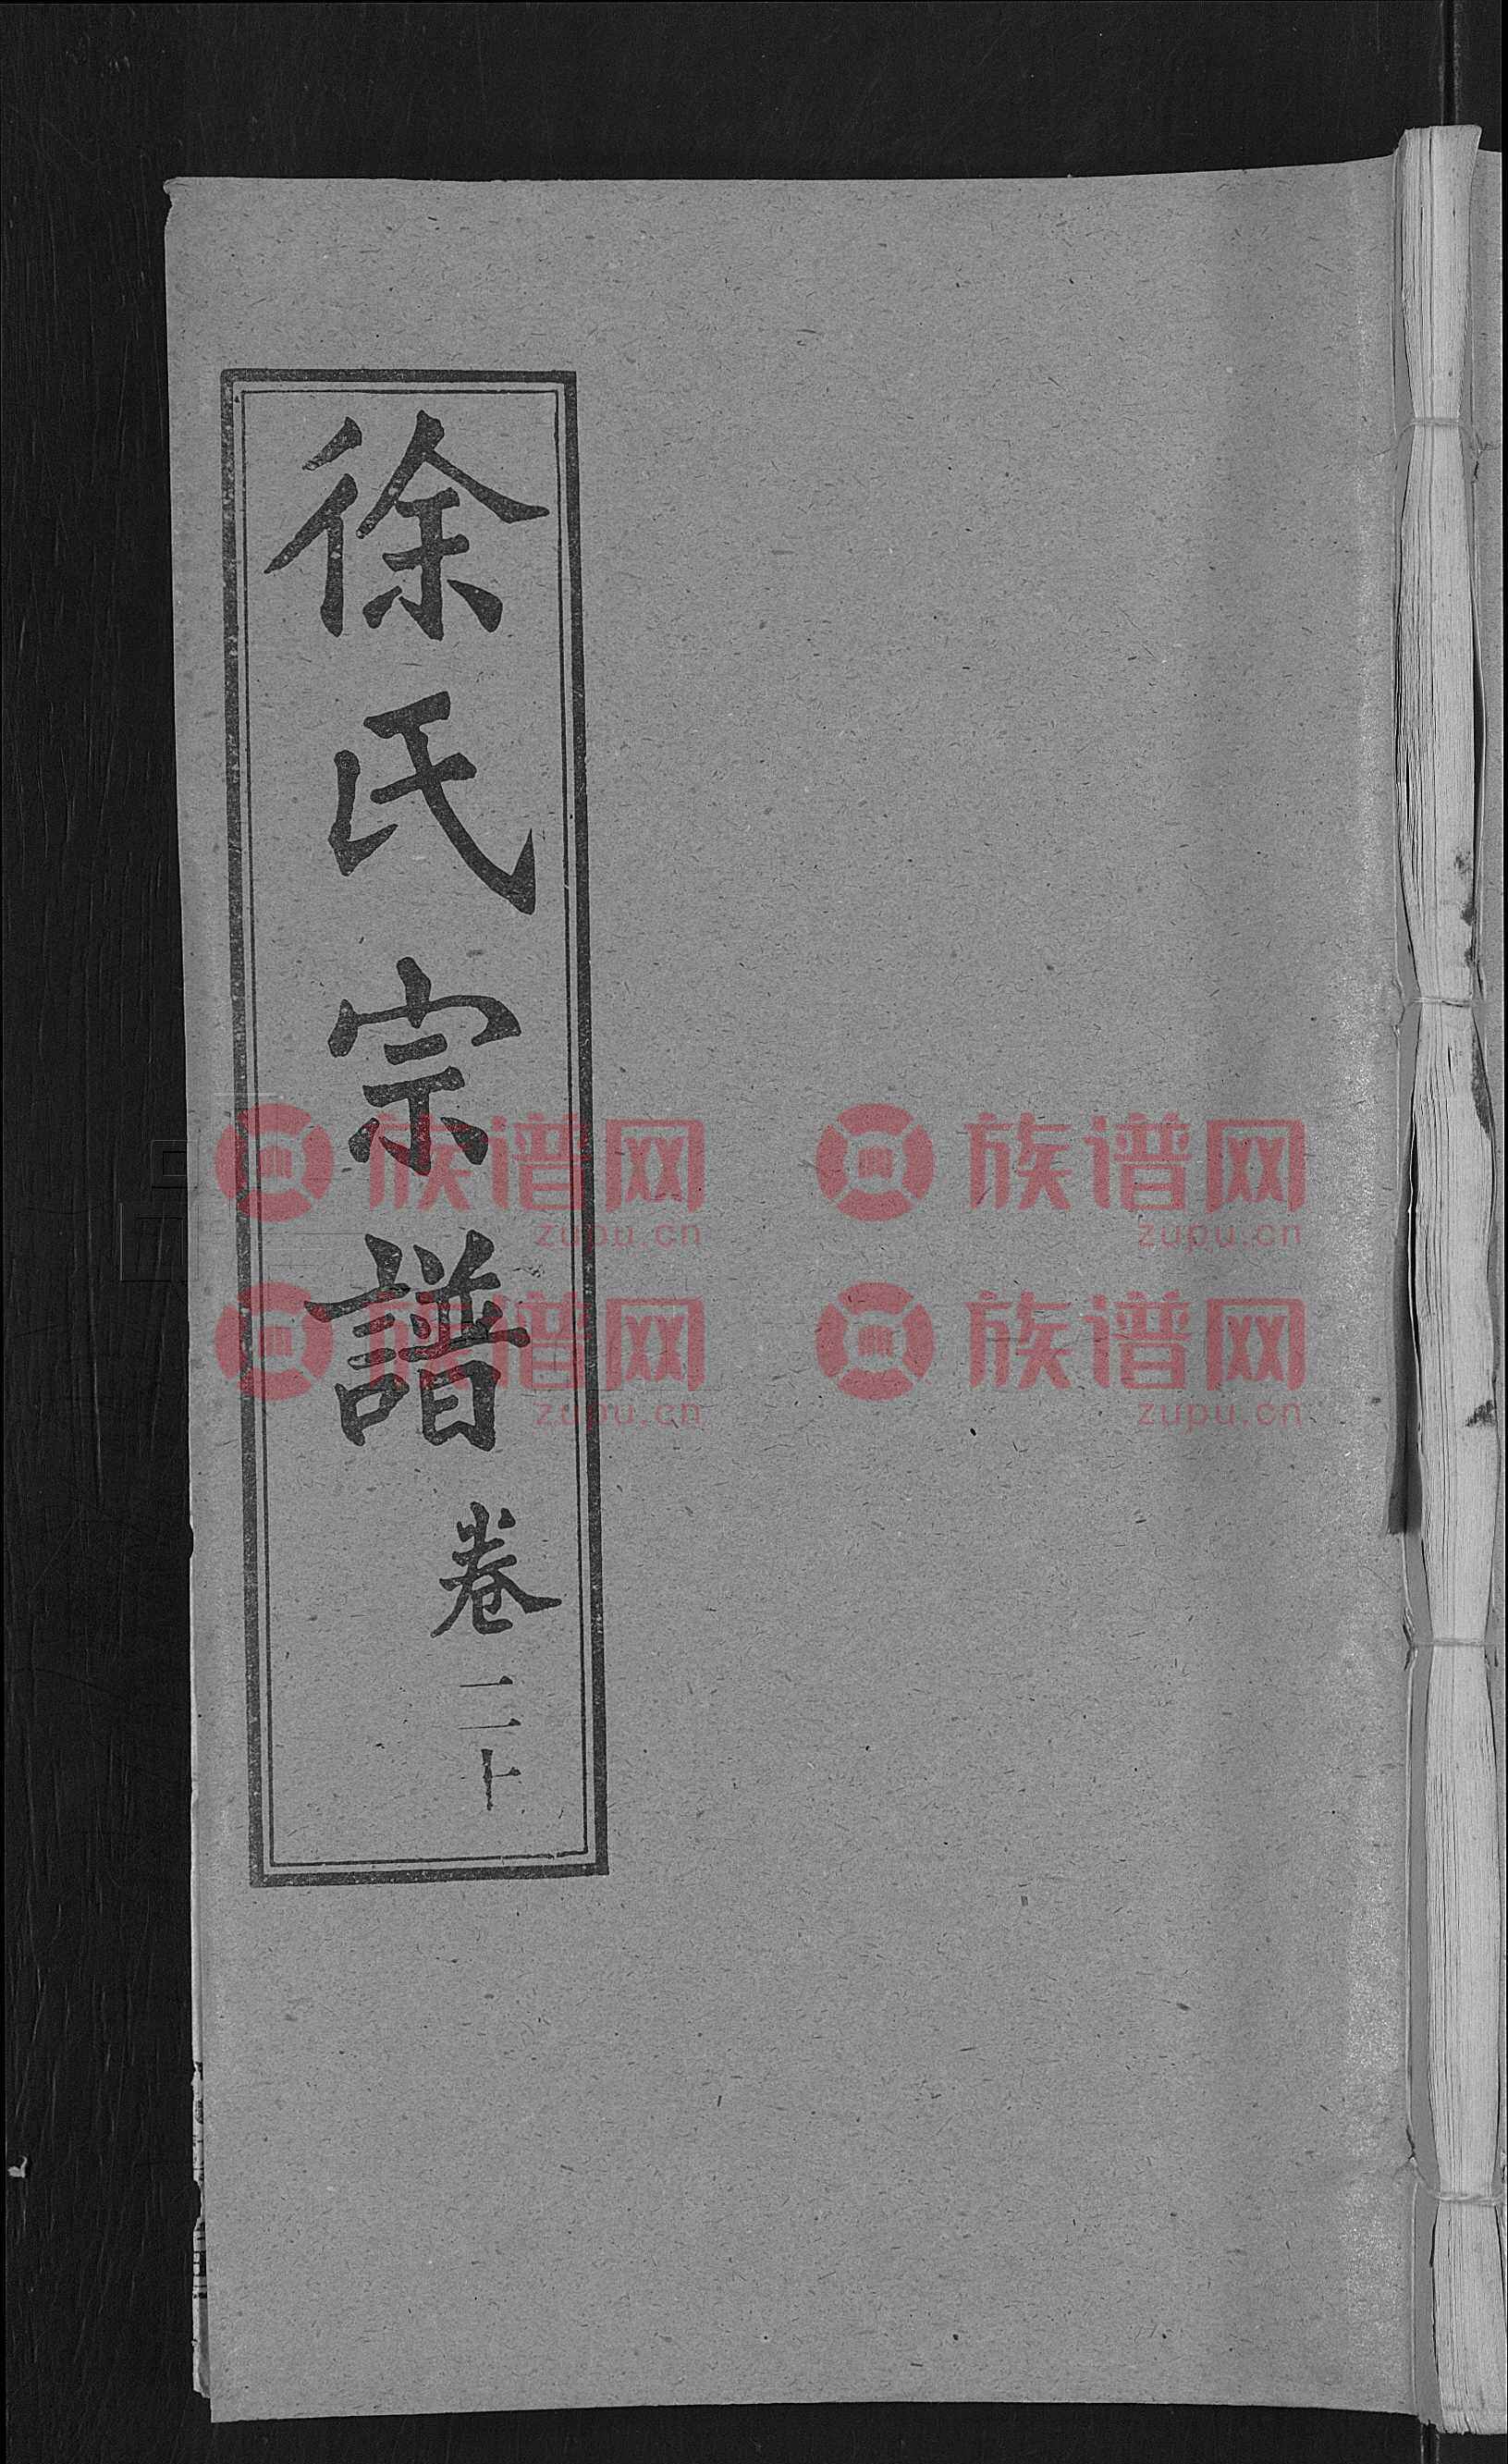 徐氏宗譜 卷二十
族谱网 族谱网
zupu.cn zupu.cn
族谱网 族谱网
zupu.cn zupu.cn